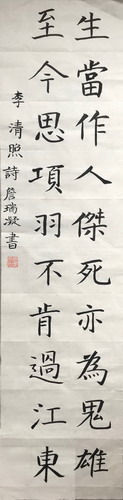 生當作人傑死亦為鬼雄
至今思項羽不肯過江東
李清照詩詹瑞凝書